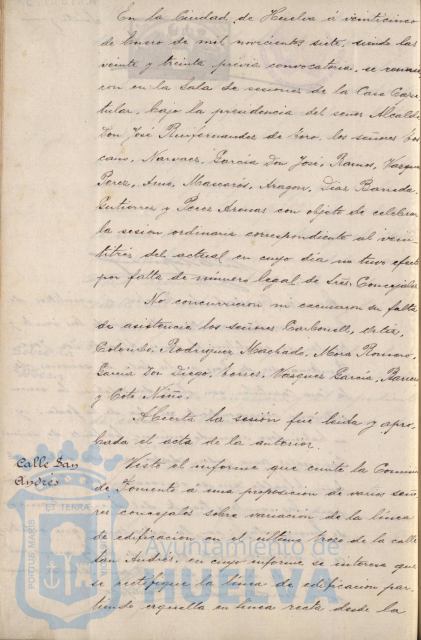 En la Ciudad de Huelva á veinticinco
de Enero de mil novecientos siete, siendo las
veinte y treinta previa convocatoria, se reunie-
ron en la Sala de sesiones de la Casa Capi-
tular, bajo la presidencia del señor Alcalde
Don José de Toro, los señores
Narvaez, Garcia Don José, Ramos, Vazquez
Perez, Mascarós, Aragon, Diaz Barreda,
Gutierrez y Perez con objeto de celebrar
la sesion ordinaria correspondiente al vein-
titres del actual en cuyo dia no tuvo efecto
por falta de número legal de Sres. Concejales
No concurrieron ni excusaron su falta
de asistencia los señores Carbonell,
Colombo, Rodriguez Machado, Mora Romero,
Garcia Don Diego, Torres, Vazquez Garcia,
y Coto Niño.
Abierta la sesión fué leida y apro-
bada el acta de la anterior.
Calle San
Andrés
Visto el informe que emite la Comision
de Fomento á una proposicion de varios seño-
res concejales sobre variacion de la linea
de edificacion en el último trozo de la calle
San Andrés, en cuyo informe se interesa que
se rectifique la linea de edificacion par-
tiendo aquella en linea recta desde la
PORTUS MARIS
ET TERRÆ
Ayuntamiento de
HUELVA